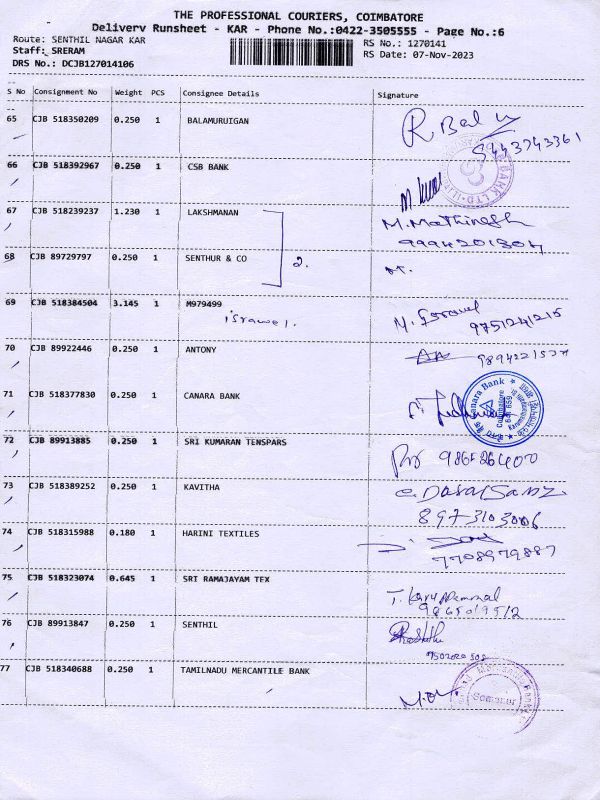 THE PROFESSIONAL COURIERS, COIMBATORE
Delivery Runsheet - KAR - Phone No.:0422-3505555 - Page No.:6
Route: SENTHIL NAGAR KAR
RS No.: 1270141
Staff: SRERAM
RS Date: 07-Nov-2023
DRS No.: DCJB127014106
S No Consignment No Weight PCS Consignee Details Signature
65 CJB 518350209 0.250 1 BALAMURUIGAN R Balu
9443743361
66 CJB 518392967 0.250 1 CSB BANK M. Kumar
67 CJB 518239237 1.230 1 LAKSHMANAN M. Mathinesh
9994201304
68 CJB 89729797 0.250 1 SENTHUR & CO 2.
69 CJB 518384504 3.145 1 M979499 M. Isravel
israwel. 9751241215
70 CJB 89922446 0.250 1 ANTONY
71 CJB 518377830 0.250 1 CANARA BANK
Canara Bank
Coimbatore
641 659
72 CJB 89913885 0.250 1 SRI KUMARAN TENSPARS
73 CJB 518389252 0.250 1 KAVITHA
8973103006
74 CJB 518315988 0.180 1 HARINI TEXTILES
7708979887
75 CJB 518323074 0.645 1 SRI RAMAJAYAM TEX T. Karuppammal
9865019512
76 CJB 89913847 0.250 1 SENTHIL
77 CJB 518340688 0.250 1 TAMILNADU MERCANTILE BANK
Somanur